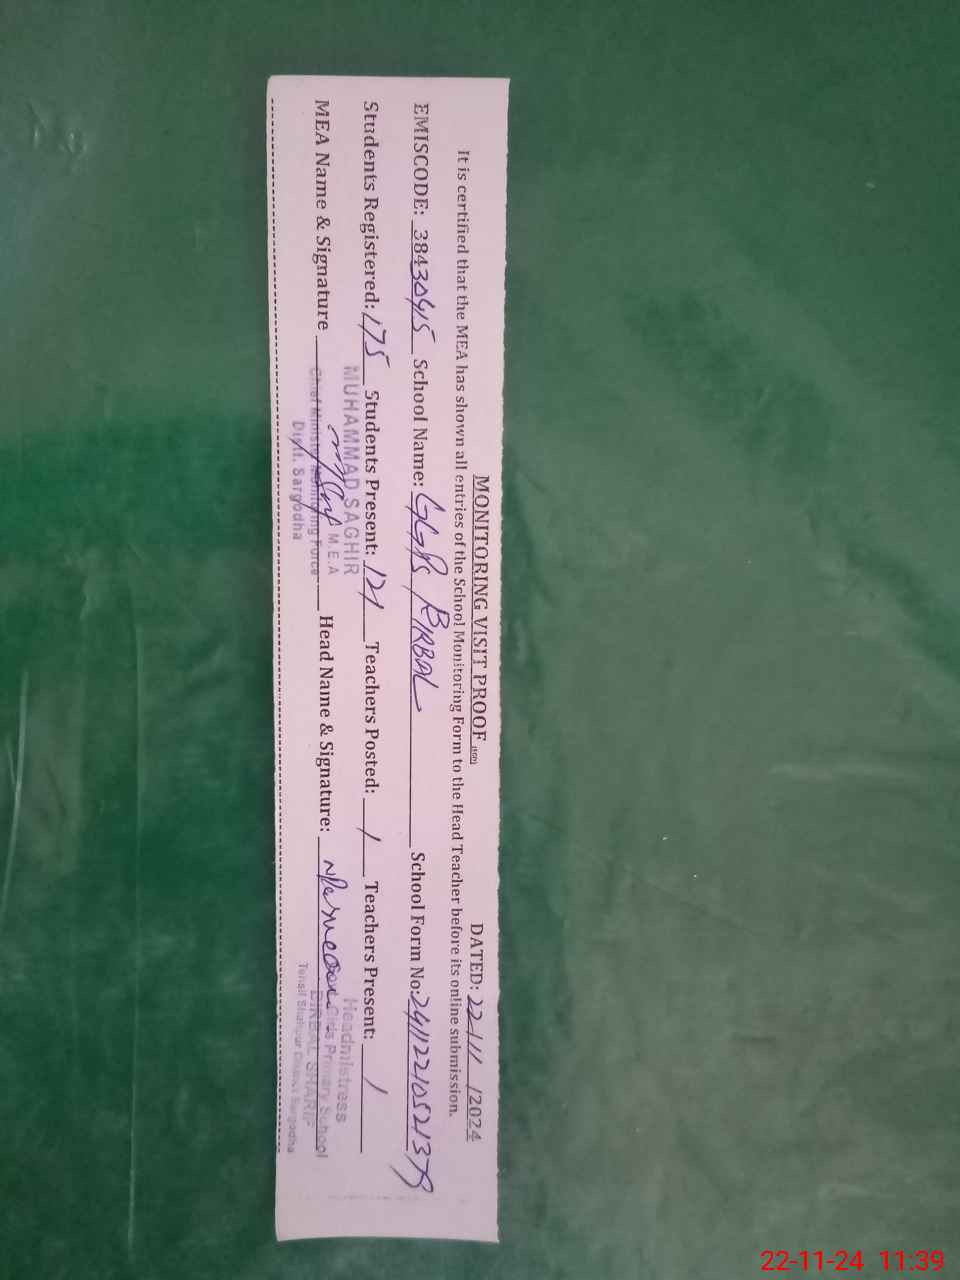 MONITORING VISIT PROOF
DATED: 22/11/2024
It is certified that the MEA has shown all entries of the School Monitoring Form to the Head Teacher before its online submission.
EMISCODE: 38430415 School Name: GGPS BIRBAL School Form No:
Students Registered: 175 Students Present: 121 Teachers Posted: 1 Teachers Present: 1
MUHAMMAD SAGHIR
M.E.A
Chief Minister Monitoring Force
Distt. Sargodha
MEA Name & Signature Head Name & Signature:
Headmistress
Girls Primary School
BIRBAL SHARIF
Tehsil Shahpur District Sargodha
22-11-24 11:39